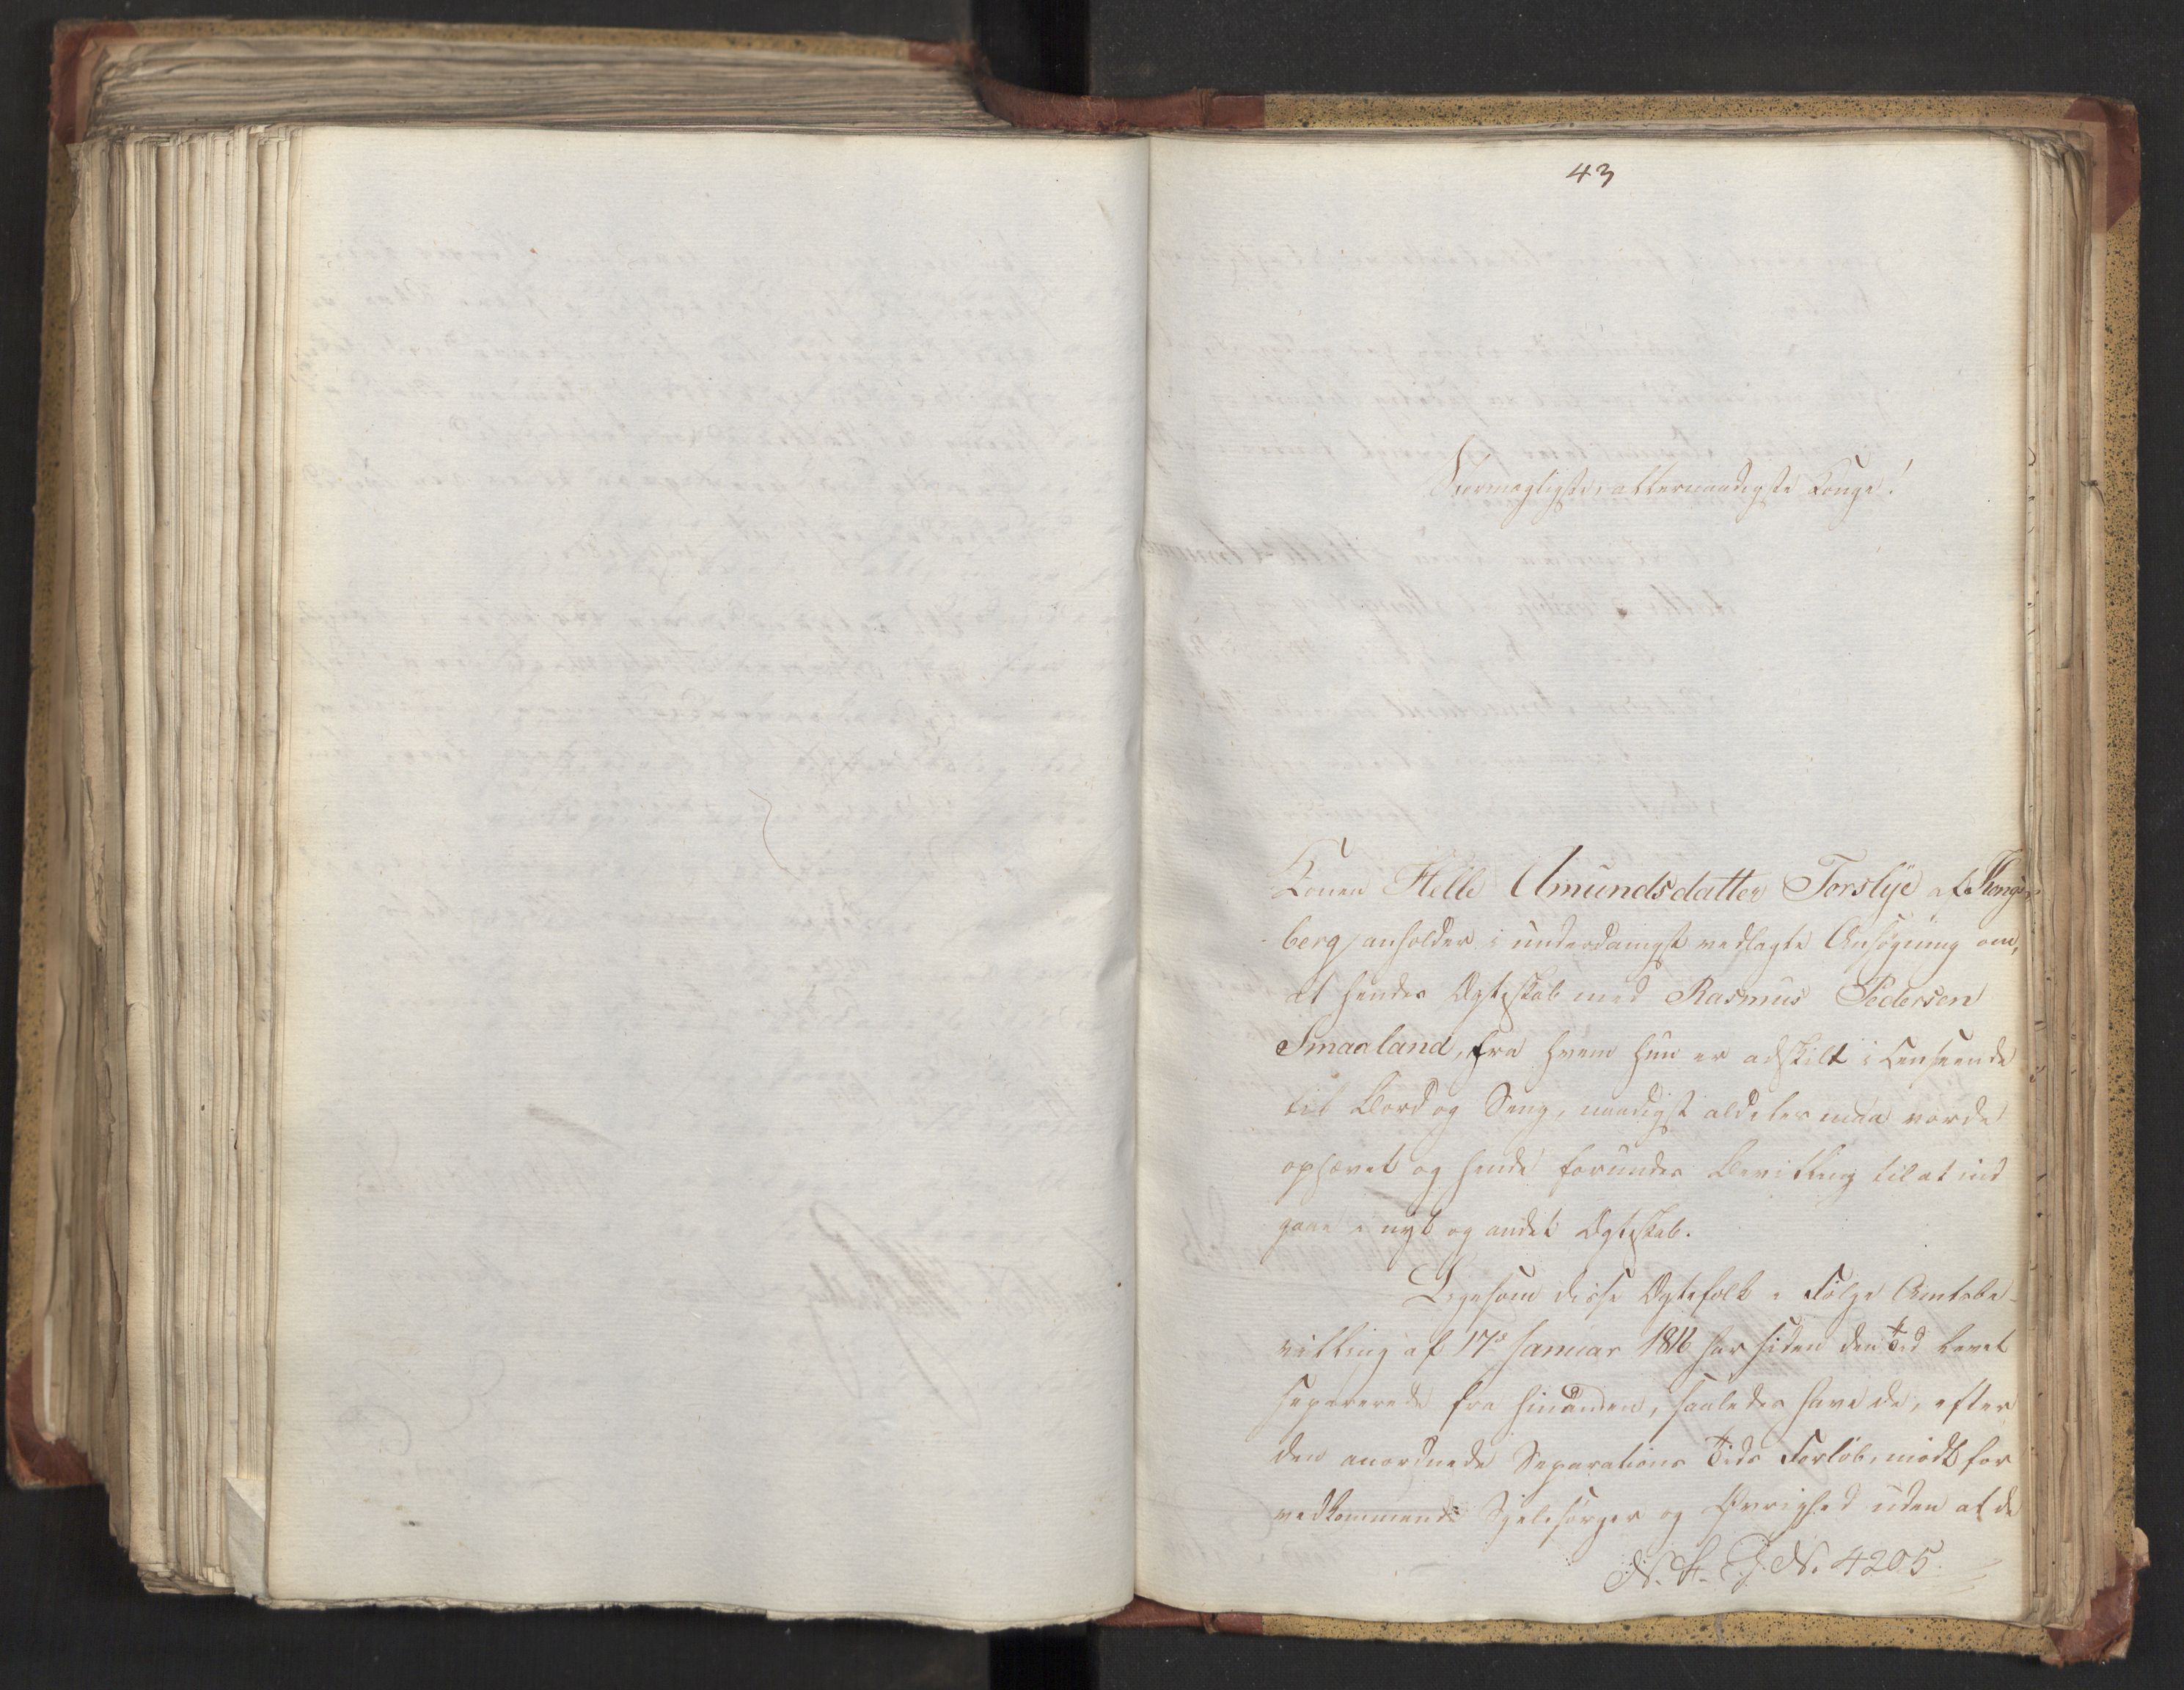 43
Stormægtigste, allernaadigste Konge!
Konen Helle Amundsdatter Torslye af Kongs-
berg anholder i underdanigst vedlagte Ansøgning om,
at hendes Ægteskab med Rasmus Pedersen
Smaaland, fra hvem hun er adskilt i Henseende
til Bord og Seng, naadigst aldeles maa vorde
ophævet og hende forundes Bevilling til at ind
gaae i nyt og andet Ægteskab.
Ligesom disse Ægtefolk i Følge Amtsbe-
villing af 17de Januar 1816 har siden den Tid levet
separerede fra hinanden, saaledes have de, efter
den anordnede Separations Tids Forløb, mødt for
vedkommende Sjelesørger og Øvrighed uden at de
N. 4205